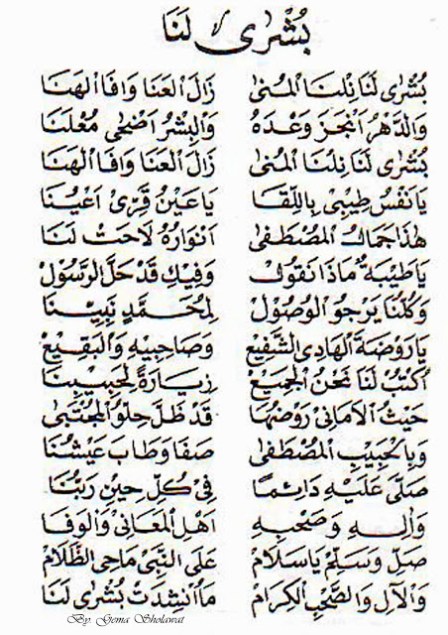 بُشْرٰى لَنَا
بُشْرٰى لَنَا نِلْنَا الْمُنٰى زَالَ الْعَنَا وَافَا الْهَنَا
وَالدَّهْرُ اَنْجَزَ وَعْدَهُ وَالْبِشْرُ اَضْحٰى مُعْلَنَا
بُشْرٰى لَنَا نِلْنَا الْمُنٰى زَالَ الْعَنَا وَافَا الْهَنَا
يَا نَفْسُ طِيْبِىْ بِاللِّقَا يَا عَيْنُ قَرِّىْ اَعْيُنَا
هٰذَا جَمَالُ الْمُصْطَفٰى اَنْوَارُهُ لَاحَتْ لَنَا
يَا طَيْبَةُ مَاذَا نَقُوْلُ وَفِيْكِ قَدْ حَلَّ الرَّسُوْلُ
وَكُلُّنَا يَرْجُو الْوُصُوْلْ لِمُحَمَّدٍ نَبِيِّنَا
يَا رَوْضَةَ الْهَادِى الشَّفِيْعِ وَصَاحِبَيْهِ وَالْبَقِيْعِ
اُكْتُبْ لَنَا نَحْنُ الْجَمِيْعْ زِيَارَةً لِحَبِيْبِنَا
حَيْثُ الْاَمَانِىْ رَوْضُهَا قَدْ ظَلَّ حِلْوُ الْمُجْتَبٰى
وَبِالْحَبِيْبِ الْمُصْطَفٰى صَفَا وَطَابَ عَيْشُنَا
صَلّٰى عَلَيْهِ دَائِمًا فِىْ كُلِّ حِيْنٍ رَبُّنَا
وَاٰلِهِ وَصَحْبِهِ اَهْلِ الْمَعَانِىْ وَالْوَفَا
صَلِّ وَسَلِّمْ يَا سَلَامْ عَلَى النَّبِىْ مَاحِى الظَّلَامْ
وَالْآلِ وَالصَّحْبِ الْكِرَامْ مَا اُنْشِدَتْ بُشْرٰى لَنَا
By. Gema Sholawat